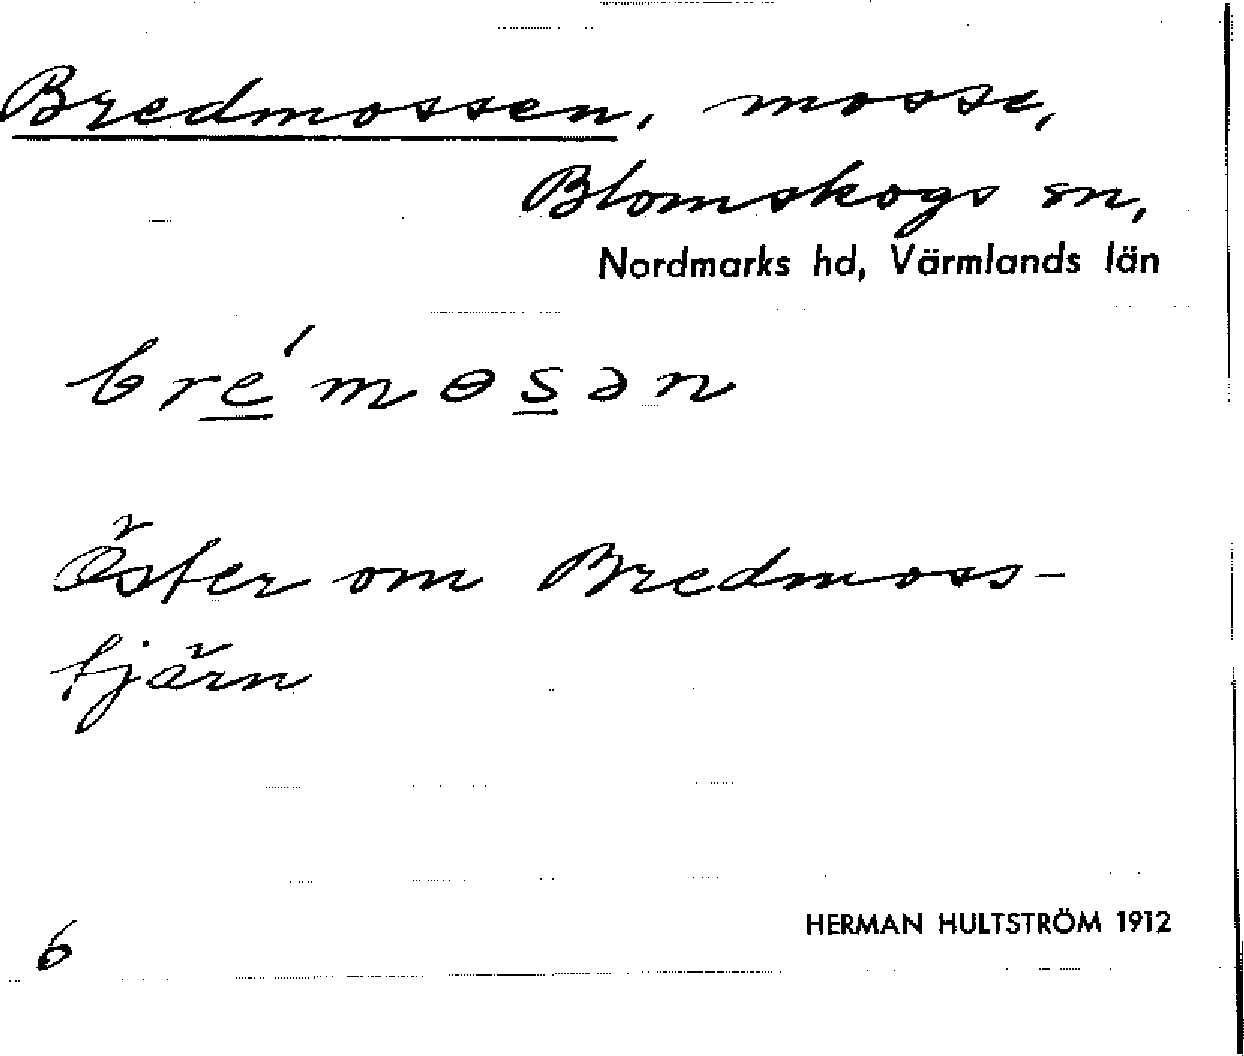 Bredmossen, mosse,
Blomskogs sn,
Nordmarks hd, Värmlands län
bre̲´mɵs̲ən
Öster om Bredmoss-
tjärn
6
HERMAN HULTSTRÖM 1912